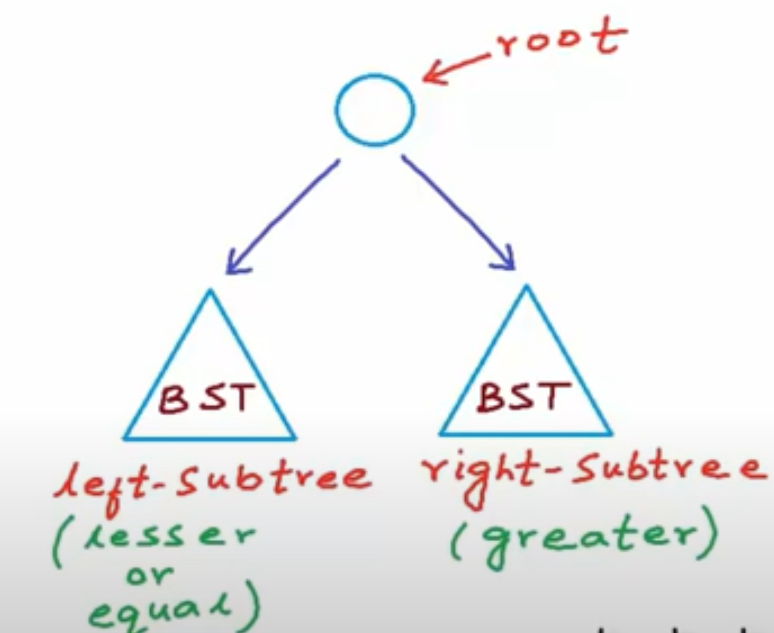 root
BST
BST
left-subtree
(lesser
or
equal)
right-subtree
(greater)